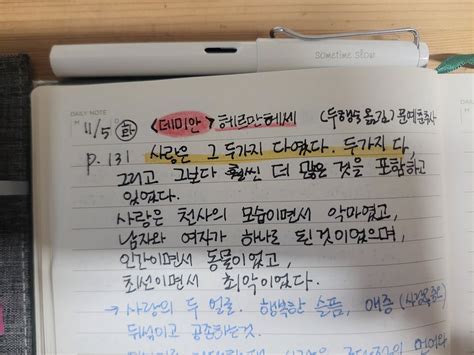 sometime slow
DAILY NOTE
11/5 화 <데미안> 헤르만 헤세 (두행숙 옮김) 문예춘추사
P. 131 사랑은 그 두가지 다였다. 두가지 다,
그리고 그보다 훨씬 더 많은 것을 포함하고
있었다.
사랑은 천사의 모습이면서 악마였고,
남자와 여자가 하나로 된 것이었으며,
인간이면서 동물이었고,
최선이면서 최악이었다.
→ 사랑의 두 얼굴. 행복한 슬픔, 애증
뒤섞이고 공존하는것.